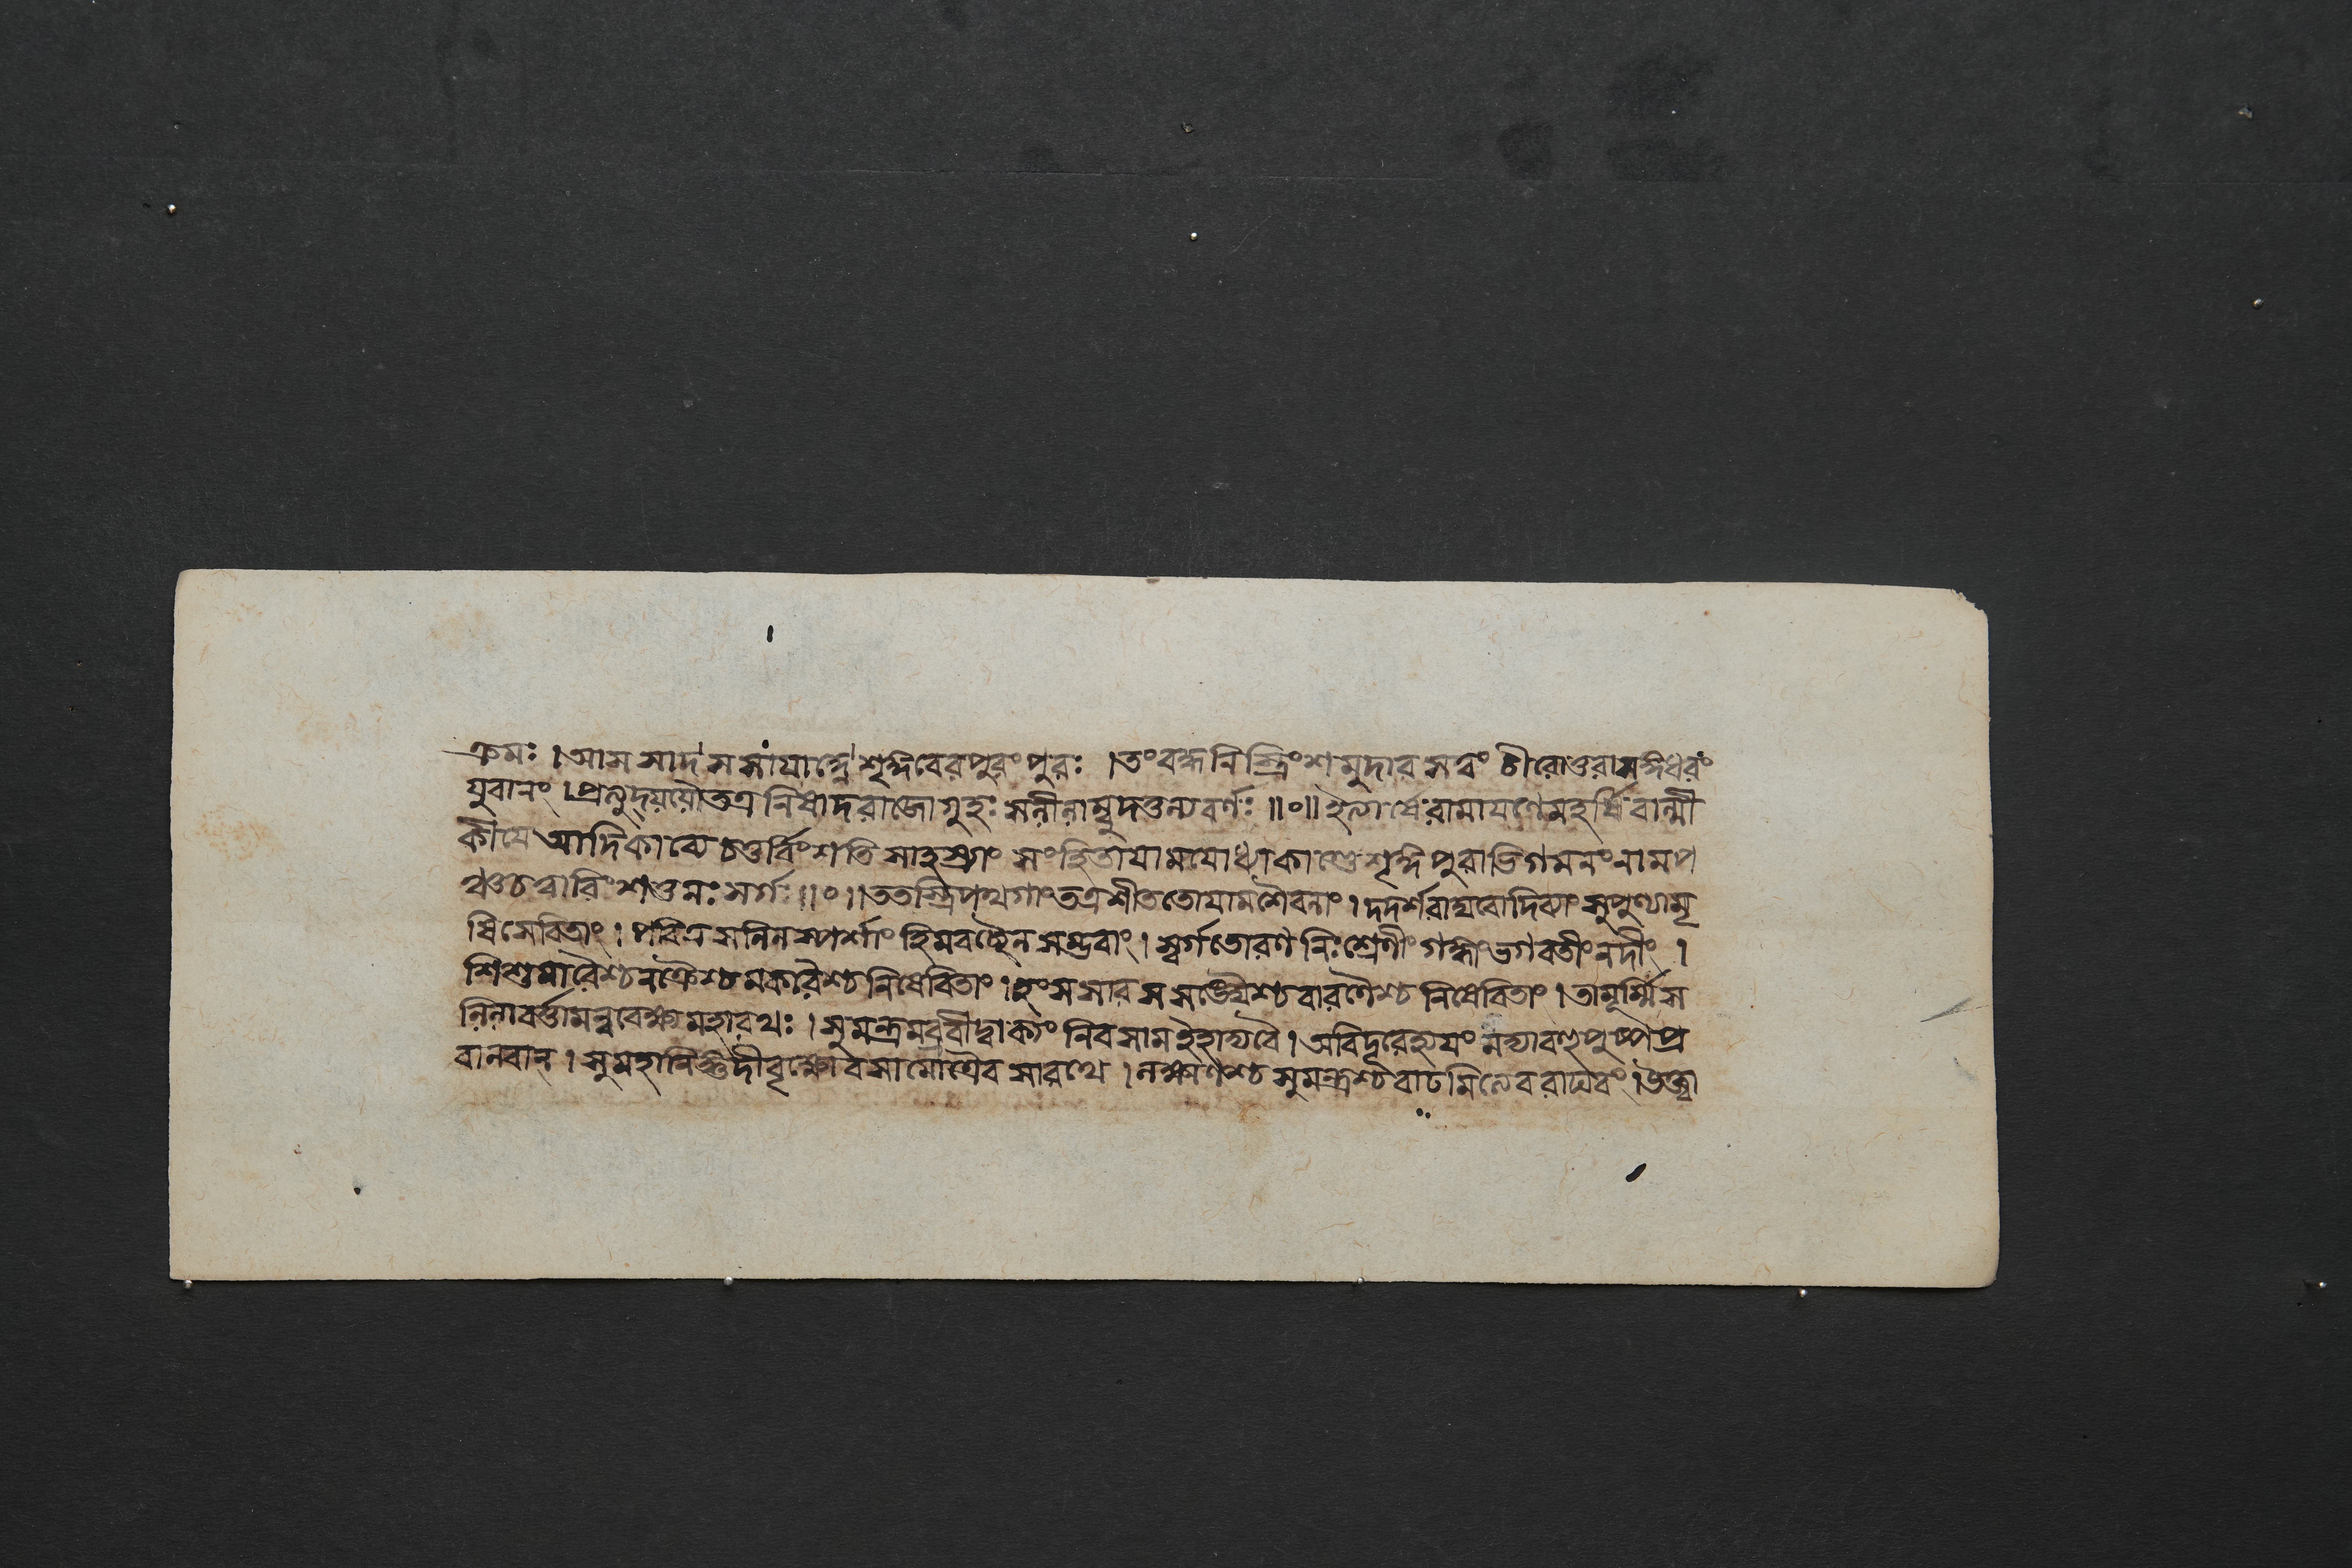 ক্রমঃ । আসসাদ স সাযাহ্নে শৃঙ্গবেরপুরং পুরঃ । তং বদ্ধনিস্ত্রিংশমুদারসত্ত্বং চীরোত্তরাসঙ্গধরং
যুবানং । প্রত্যুদ্যযৌ তত্র নিষাদরাজো গুহঃ সনীলাম্বুদতুল্যবর্ণঃ ॥০॥ ইত্যার্ষে রামাযণে মহর্ষিবাল্মী
কীযে আদিকাব্যে চতুর্বিংশতিসাহস্র্যাং সংহিতাযামযোধ্যাকাণ্ডে শৃঙ্গিপুরাভিগমনং নাম প
ঞ্চচত্বারিংশত্তমঃ সর্গঃ ॥০॥ ততস্ত্রিপথগাং তত্র শীততোযামশৈবলাং । দদর্শ রাঘবো দিব্যাং সুপুণ্যামৃ
ষিসেবিতাং । পবিত্রসলিলস্পর্শাং হিমবচ্ছৈলসম্ভবাং । স্বর্গতোরণনিঃশ্রেণীং গঙ্গাং ভগবতীং নদীং ।
শিশুমারৈশ্চ নক্রৈশ্চ মকরৈশ্চ নিষেবিতাং । হংসসারসসঙ্ঘৈশ্চ বারণৈশ্চ নিষেবিতাং । তামূর্ম্মিস
লিলাবর্ত্তামন্ববেক্ষ্য মহারথঃ । সুমন্ত্রমব্রবীদ্বাক্যং নিবসাম ইহাদ্য বৈ । অবিদূরে হ্যযং নদ্যা বহুপুষ্পপ্র
বালবান্ । সুমহানিঙ্গুদীবৃক্ষো বসামোত্রৈব সারথে । লক্ষ্মণশ্চ সুমন্ত্রশ্চ বাঢমিত্যেব রাঘবং । উক্ত্বা